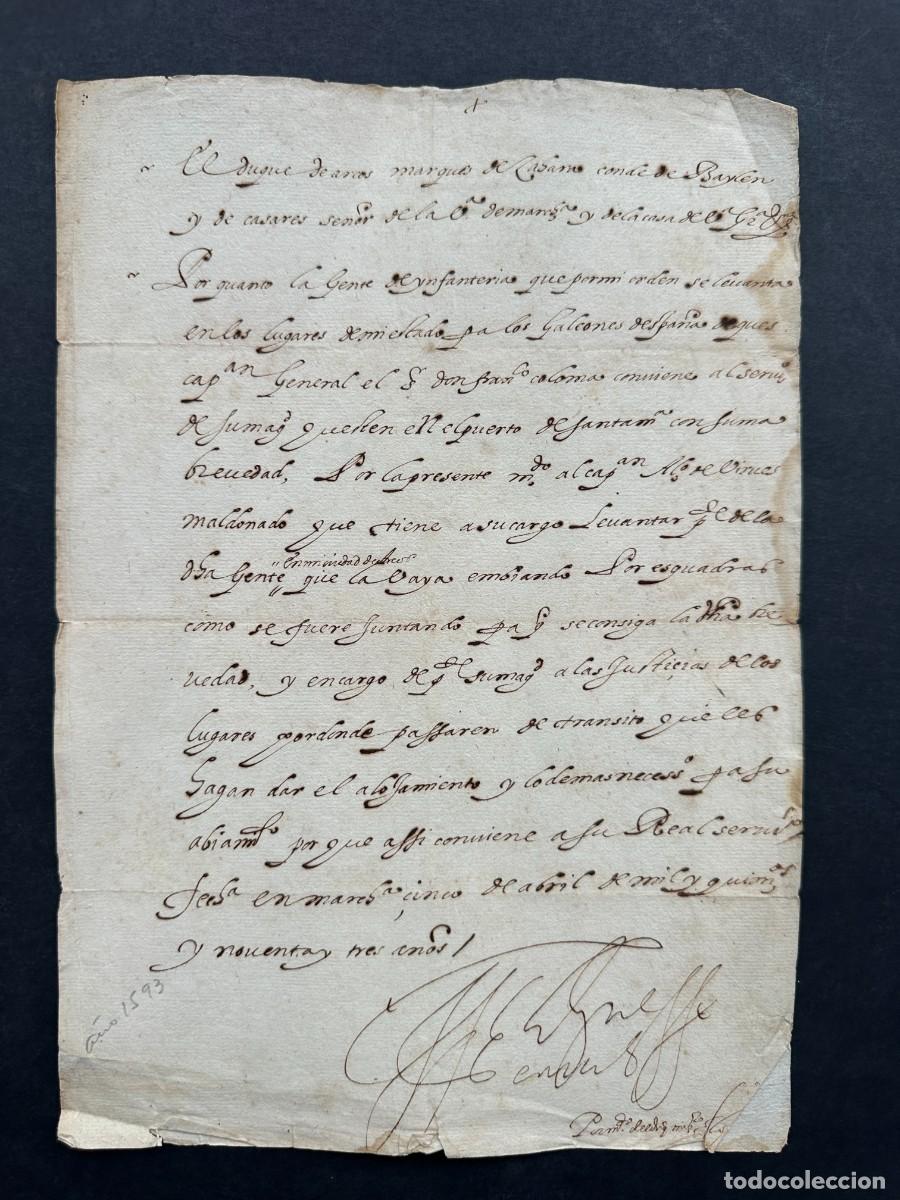 +
El duque de arcos marques de Zahara conde de Baylen
y de casares señor de la Vª de marchª y de la casa de
Por quanto la Gente de ynfanteria que por mi orden se levanta
en los lugares de mi estado pa los Galeones despaña de ques
capan General el Sr don franco coloma conviene al servio
de su magd questen en el puerto de santa mª con suma
brevedad, Por la presente mdo al capan Alº de Virues
maldonado que tiene a su cargo Levantar pte de la
dha Gente en mi ciudad de Arcos que la vaya embiando Por esquadras
como se fuere Juntando pa q se consiga la dha bre
vedad, y encargo de pte su magd a las Justiçias de los
lugares por donde passaren de transito que les
hagan dar el aloJamiento y lo demas necesso pa su
abiamto por que assi conviene a su Real servio
fecha en marcha çinco de abril de mil y quinos
y noventa y tres años /
El Duque
Por mdo del duq mi sr
año 1593
todocoleccion